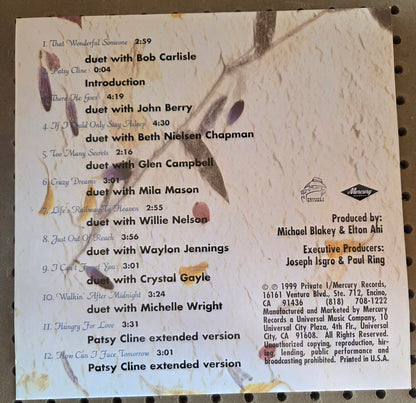 1. That Wonderful Someone 2:59
duet with Bob Carlisle
2. Patsy Cline 0:04
Introduction
3. There He Goes 4:19
duet with John Berry
4. If I Could Only Stay Asleep 4:30
duet with Beth Nielsen Chapman
5. Too Many Secrets 2:16
duet with Glen Campbell
6. Crazy Dreams 3:01
duet with Mila Mason
7. Life's Railway To Heaven 2:55
duet with Willie Nelson
8. Just Out Of Reach 3:56
duet with Waylon Jennings
9. I Can't Forget You 3:01
duet with Crystal Gayle
10. Walkin' After Midnight 3:24
duet with Michelle Wright
11. Hungry For Love 3:31
Patsy Cline extended version
12. How Can I Face Tomorrow 3:01
Patsy Cline extended version
Mercury
Produced by:
Michael Blakey & Elton Ahi
Executive Producers:
Joseph Isgro & Paul Ring
© ℗ 1999 Private I/Mercury Records,
16161 Ventura Blvd., Ste. 712, Encino,
CA 91436 (818) 708-1222
Manufactured and Marketed by Mercury
Records a Universal Music Company, 10
Universal City Plaza, 4th Flr., Universal
City, CA 91608. All Rights Reserved.
Unauthorized copying, reproduction, hir-
ing, lending, public performance and
broadcasting prohibited. Printed in U.S.A.